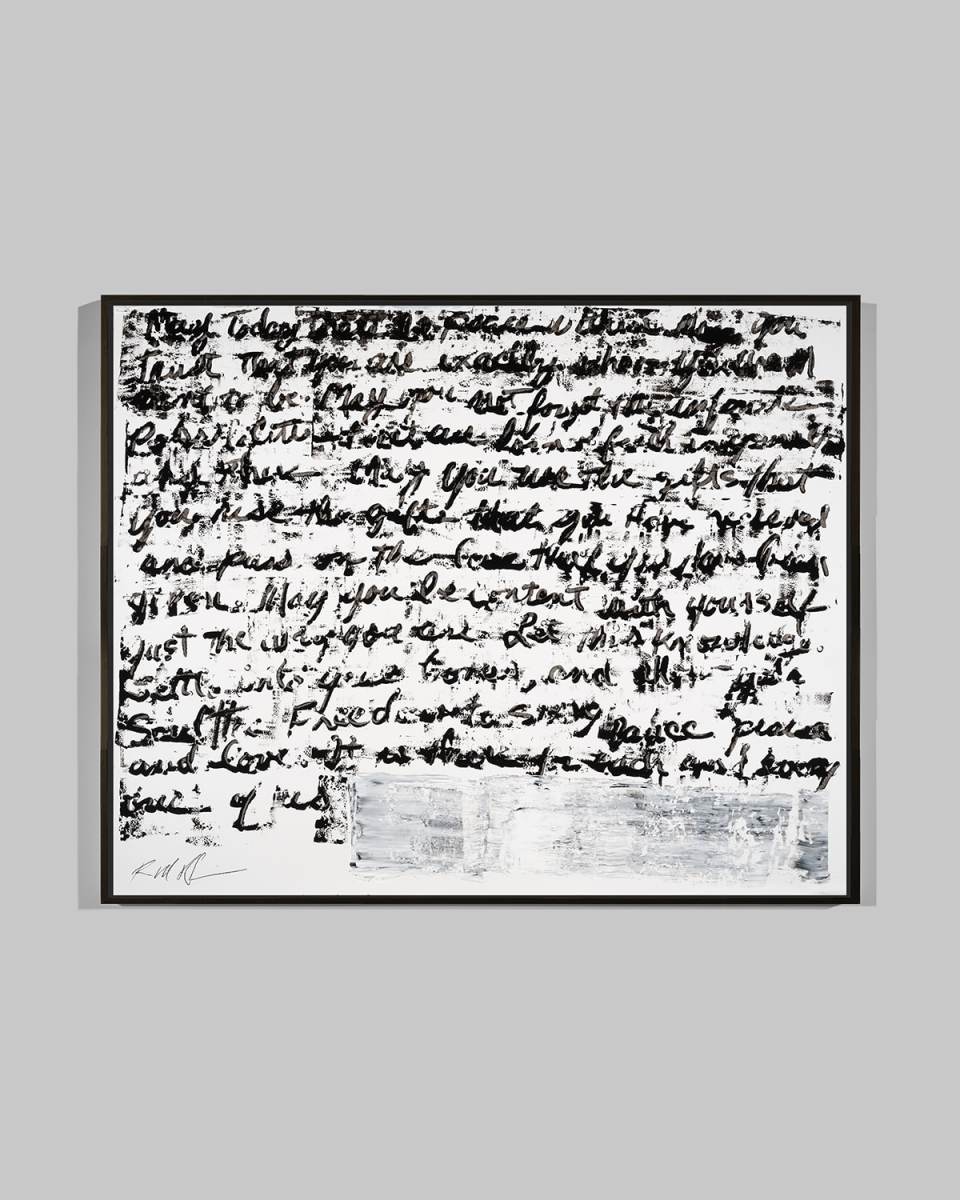 May Today there be peace within. May you
trust that you are exactly where you
meant to be. May you not forget the infinite
Possibilities that are born of faith in yourself
and others. May you use the gifts that
you use the gifts that you have received
and pass on the love that you have been
given. May you be content with yourself
just the way you are. Let this knowledge
settle into your bones, and allow your
Soul the Freedom to sing, dance, praise
and love. It is there for each and every
one of us